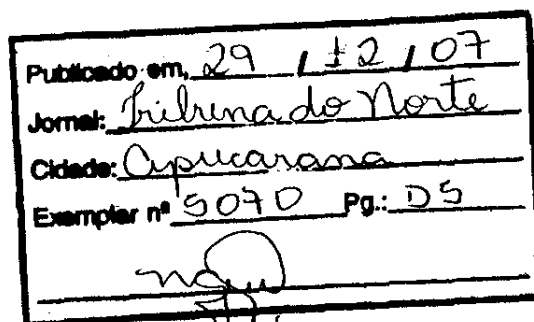 Publicado em, 29 / 12 / 07
Jornal: Tribuna do Norte
Cidade: Apucarana
Exemplar nº 5070 Pg.: D5